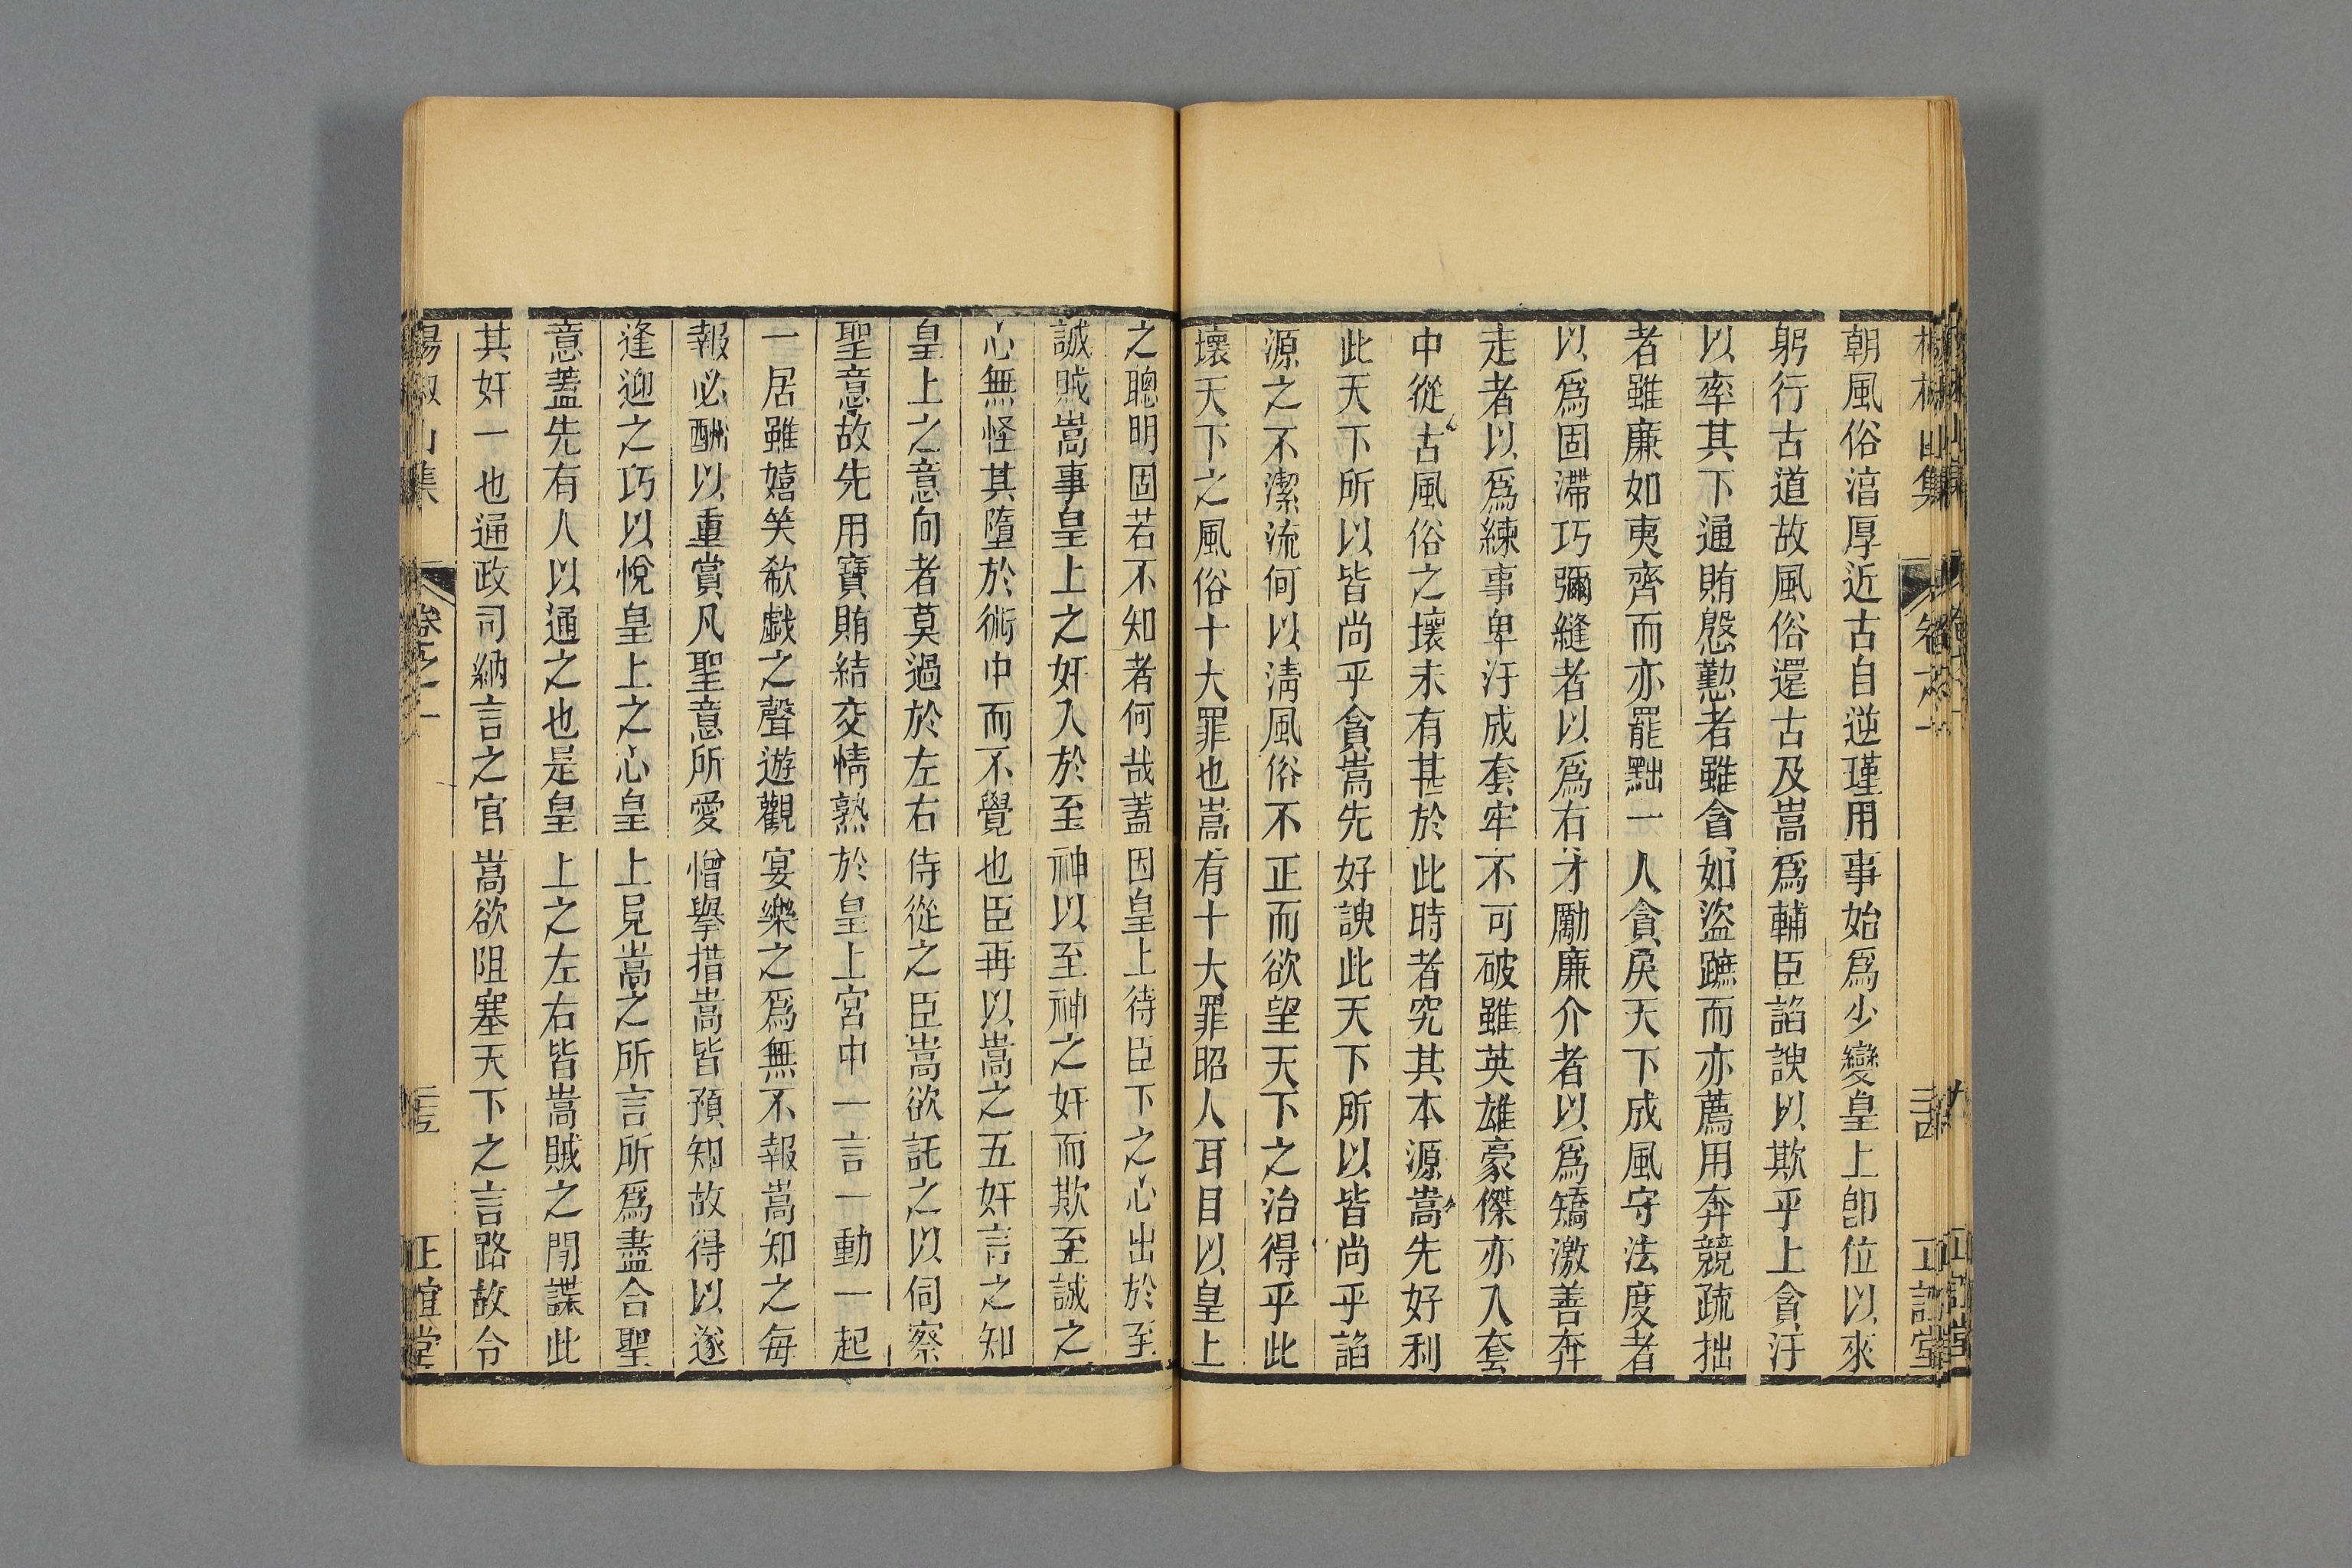 朝風俗湻厚近古自逆瑾用事始爲少變皇上卽位以來
躬行古道故風俗還古及嵩爲輔臣諂諛以欺乎上貪汙
以率其下通賄慇懃者雖貪如盜蹠而亦薦用奔競疏拙
者雖廉如夷齊而亦罷黜一人貪戾天下成風守法度者
以爲固滯巧彌縫者以爲有才勵廉介者以爲矯激善奔
走者以爲練事卑汙成套牢不可破雖英雄豪傑亦入套
中從古風俗之壞未有甚於此時者究其本源嵩先好利
此天下所以皆尚乎貪嵩先好諛此天下所以皆尚乎諂
源之不潔流何以淸風俗不正而欲望天下之治得乎此
壞天下之風俗十大罪也嵩有十大罪昭人耳目以皇上
之聰明固若不知者何哉蓋因皇上待臣下之心出於至
誠賊嵩事皇上之奸入於至神以至神之奸而欺至誠之
心無怪其墮於術中而不覺也臣再以嵩之五奸言之知
皇上之意向者莫過於左右侍從之臣嵩欲託之以伺察
聖意故先用寶賄結交情熟於皇上宮中一言一動一起
一居雖嬉笑欷戱之聲遊觀宴樂之爲無不報嵩知之每
報必酬以重賞凡聖意所愛憎擧措嵩皆預知故得以遂
逢迎之巧以悅皇上之心皇上見嵩之所言所爲盡合聖
意蓋先有人以通之也是皇上之左右皆嵩賊之閒諜此
其奸一也通政司納言之官嵩欲阻塞天下之言路故令
楊椒山集 卷之一 三五 正誼堂